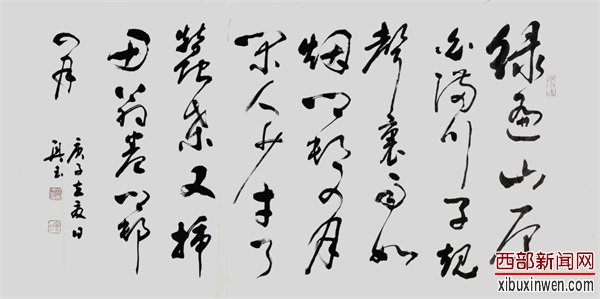 绿遍山原
白满川子规
聲裏雨如
烟乡邨四月
闲人少才了
蠶桑又插
田翁卷乡邨
四月
庚子立夏日
西部新闻网
xibuxinwen.com